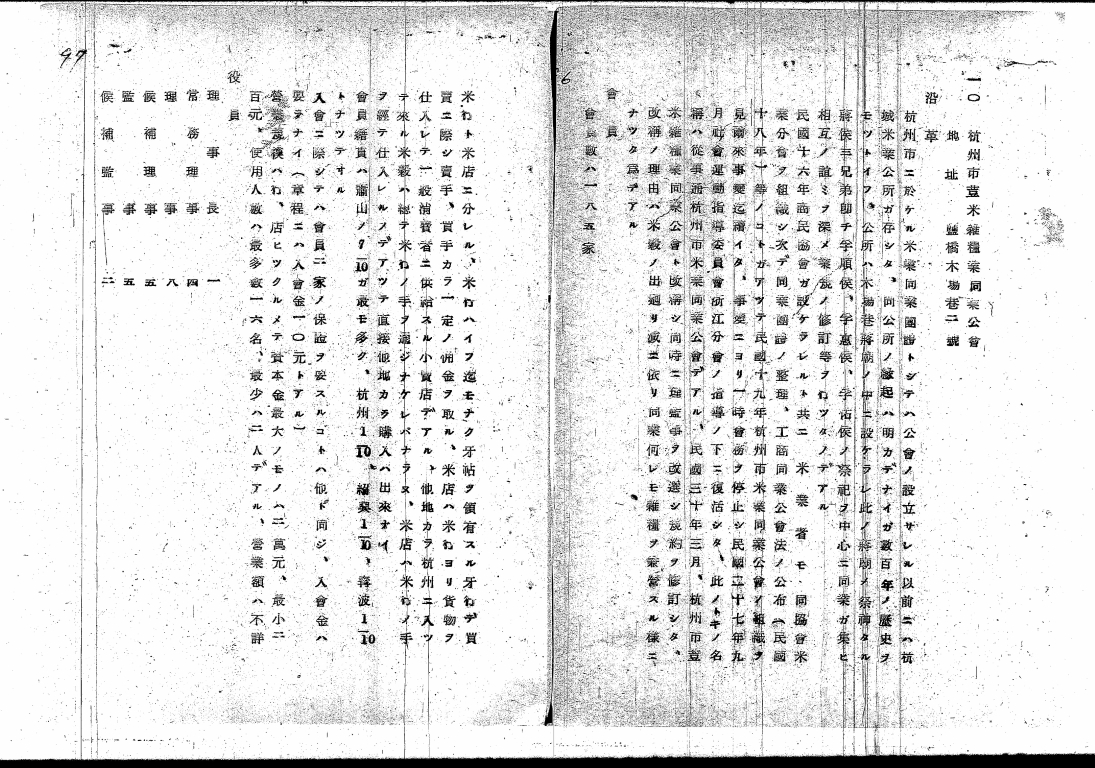 一〇　杭州市荳米雑糧業同業公會
地　址　鹽橋木場巷二號
沿　革
杭州市ニ於ケル米業同業團體トシテハ公會ノ設立サレル以前ニハ杭
城米業公所ガ存シタ、同公所ノ縁起ハ明カデナイガ数百年ノ歴史ヲ
モツトイフ、公所ハ木場巷蔣廟ノ中ニ設ケラレ此ノ蔣廟ノ祭神タル
蔣侯三兄弟即チ孚順侯、孚惠侯、孚佑侯ノ祭祀ヲ中心ニ同業ガ集ヒ
相互ノ誼ミヲ深メ業規ノ修訂等ヲ行ツタノデアル
民國十六年商民協會ガ設ケラレルト共ニ米業者モ同協會米
業分會ヲ組織シ次デ同業團體ノ整理、工商同業公會法ノ公布（民國
十八年）等ノコトガアツテ民國十九年杭州市米業同業公會ノ組織ヲ
見爾來事變迄續イタ、事變ニヨリ一時會務ヲ停止シ民國二十七年九
月社會運動指導委員會浙江分會ノ指導ノ下ニ復活シタ、此ノトキノ名
稱ハ從事通杭州市米業同業公會デアル、民國三十年三月、杭州市荳
米雑糧業同業公會ト改稱シ同時ニ理監事ヲ改選シ規約ヲ修訂シタ、
改稱ノ理由ハ米穀ノ出廻リ減ニ依リ同業何レモ雑糧ヲ兼營スル様ニ
ナツタ爲デアル
會　員
會員数ハ一八五家
米行ト米店ニ分レル、米行ハイフ迄モナク牙帖ヲ領有スル牙行デ買
賣ニ際シ賣手、買手カラ一定ノ佣金ヲ取ル、米店ハ米行ヨリ貨物ヲ
仕入レテ一般消費者ニ供給スル小賣店デアル、他地カラ杭州ニ入ツ
テ來ル米穀ハ總テ米行ノ手ヲ通ジナケレバナラヌ、米店ハ米行ノ手
ヲ經テ仕入レルノデアツテ直接他地カラ購入ハ出來ナイ
會員籍貫ハ蕭山ノ7/10ガ最モ多ク、杭州1/10、紹興1/10、寧波1/10
トナツテオル
入會ニ際シテハ會員二家ノ保證ヲ要スルコトハ他ト同ジ、入會金ハ
要ラナイ（章程ニハ入會金一〇元トアル）
營業規模ハ行、店ヒツクルメテ資本金最大ノモノハ二萬元、最小ニ
百元、使用人数ハ最多数一六名、最少ハ二人デアル、營業額ハ不詳
役　員
理事長　一
常務理事　四
理事　八
候補理事　五
監事　五
候補監事　二